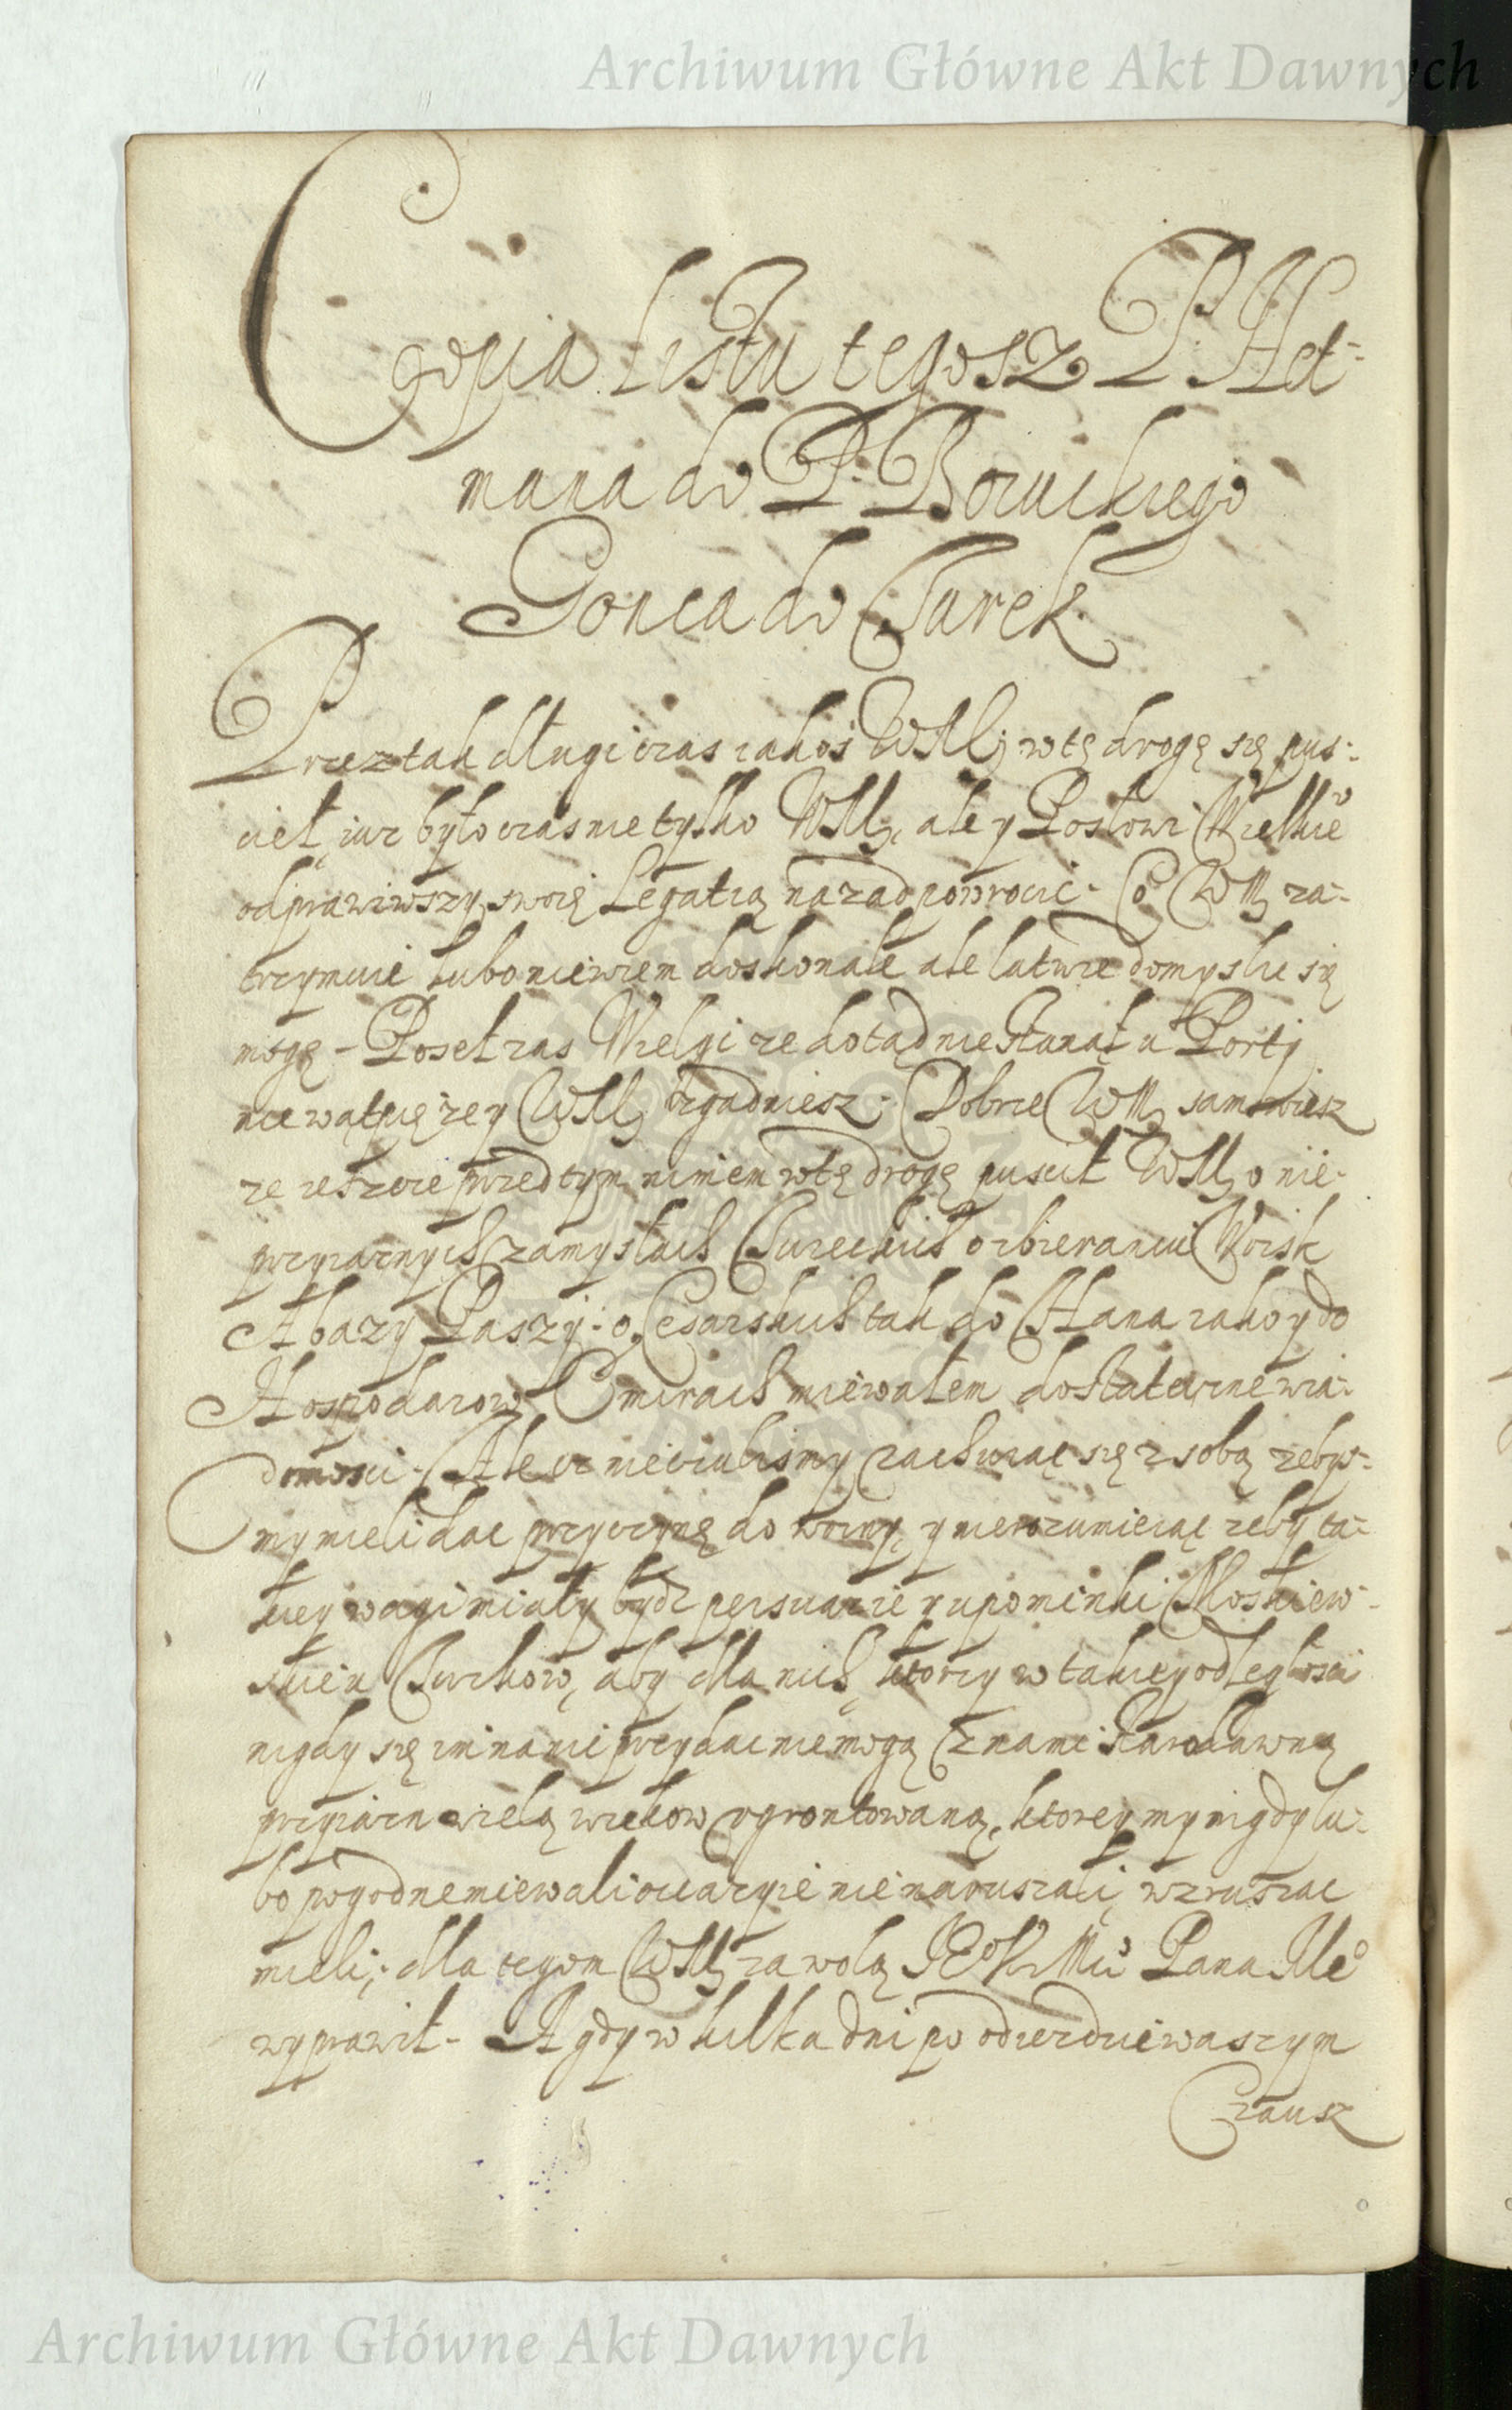 Archiwum Główne Akt Dawnych
Copia Listu tegosz P. Het-
mana do P. Boruckiego
Gonca do Turek
Przez tak długi czas iakoś WMć w tę drogę się pus-
cieł, iuz było czas nie tylko WMć, ale y Posłowi Wielkie°
odprawiwszy swoię Legatią nazad powrocic. Co WMć za-
trzymuie lubo niewiem doskonale ale łatwie domyslic się
mogę - Poseł zas Wielgi ze dotąd nie stanął u Porty
nie wątpię ze y WMć zgadniesz. Dobrze WMć sam wiesz
ze ieszcze przed tym nimem w tę drogę puscił WMć o nie-
przyiaznych zamysłach Tureckich o zbieraniu Woisk
Abazy Paszy. o Cesarskich tak do Hana iako y do
Hospodarow Emirach miewałem dostateczne wia-
domosci. Ale ze nieczulismy zachwiać się z sobą zebys-
my mieli dac przyczynę do woiny, y nierozumieiąc zeby ta-
kiey wagi miały bydz persuazie y upominki Moskiew-
skie u Turkow, aby dla nich, ktorzy w takiey odległosci
nigdy się im na nic przydac nie mogą z nami starodawną
przyiazn wielą wiekow ugrontowaną, ktorey my nigdy lu-
bo pogodne miewali occazyie nie naruszali, wzruszac
mieli; dla czegom WMć za wolą IEoKMci Pana Me°
wyprawił - A gdy w kilka dni po odiezdzie waszym
Czausz
Archiwum Główne Akt Dawnych